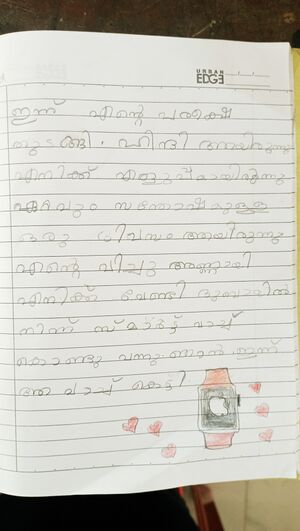 URBAN
EDGE
ഇന്ന് എന്റെ പരീക്ഷ
തുടങ്ങി. ഹിന്ദി ആയിരുന്നു
എനിക്ക് എളുപ്പമായിരുന്നു
ഏറ്റവും സന്തോഷമുള്ള
ഒരു ദിവസം ആയിരുന്നു
എന്റെ വിച്ചു അണ്ണായി
എനിക്ക് വേണ്ടി ദുബായിൽ
നിന്ന് സ്മാർട്ട് വാച്ച്
കൊണ്ടു വന്നു. ഞാൻ ഇന്ന്
ആ വാച്ച് കെട്ടി